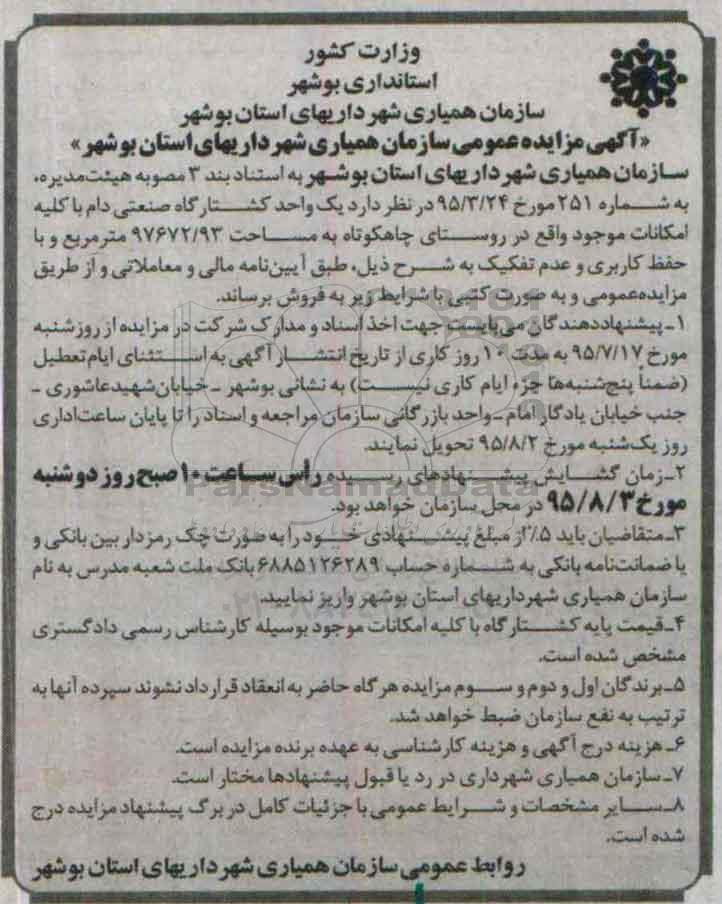 وزارت کشور
استانداری بوشهر
سازمان همیاری شهرداریهای استان بوشهر
«آگهی مزایده عمومی سازمان همیاری شهرداریهای استان بوشهر»
سازمان همیاری شهرداریهای استان بوشهر به استناد بند ۳ مصوبه هیئت‌مدیره،
به شماره ۲۵۱ مورخ ۹۵/۳/۲۴ در نظر دارد یک واحد کشتارگاه صنعتی دام با کلیه
امکانات موجود واقع در روستای چاهکوتاه به مساحت ۹۷۶۷۲/۹۳ مترمربع و با
حفظ کاربری و عدم تفکیک به شرح ذیل، طبق آیین‌نامه مالی و معاملاتی و از طریق
مزایده‌عمومی و به صورت کتبی با شرایط زیر به فروش برساند.
۱ـ پیشنهاددهندگان می‌بایست جهت اخذ اسناد و مدارک شرکت در مزایده از روز شنبه
مورخ ۹۵/۷/۱۷ به مدت ۱۰ روز کاری از تاریخ انتشار آگهی به استثنای ایام تعطیل
(ضمناً پنج‌شنبه‌ها جزء ایام کاری نیست) به نشانی بوشهر ـ خیابان شهید عاشوری ـ
جنب خیابان یادگار امام ـ واحد بازرگانی سازمان مراجعه و اسناد را تا پایان ساعت اداری
روز یک‌شنبه مورخ ۹۵/۸/۲ تحویل نمایند.
۲ـ زمان گشایش پیشنهادهای رسیده رأس ساعت ۱۰ صبح روز دوشنبه
مورخ ۹۵/۸/۳ در محل سازمان خواهد بود.
۳ـ متقاضیان باید ۵٪ از مبلغ پیشنهادی خود را به صورت چک رمزدار بین بانکی و
یا ضمانت‌نامه بانکی به شماره حساب ۶۸۸۵۱۲۶۲۸۹ بانک ملت شعبه مدرس به نام
سازمان همیاری شهرداریهای استان بوشهر واریز نمایید.
۴ـ قیمت پایه کشتارگاه با کلیه امکانات موجود بوسیله کارشناس رسمی دادگستری
مشخص شده است.
۵ـ برندگان اول و دوم و سوم مزایده هرگاه حاضر به انعقاد قرارداد نشوند سپرده آنها به
ترتیب به نفع سازمان ضبط خواهد شد.
۶ـ هزینه درج آگهی و هزینه کارشناسی به عهده برنده مزایده است.
۷ـ سازمان همیاری شهرداری در رد یا قبول پیشنهادها مختار است.
۸ـ سایر مشخصات و شرایط عمومی با جزئیات کامل در برگ پیشنهاد مزایده درج
شده است.
روابط عمومی سازمان همیاری شهرداریهای استان بوشهر
ParsNamadData